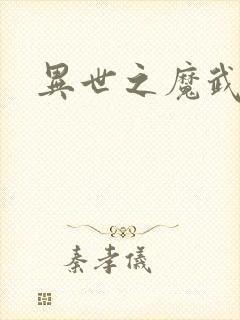 異世之魔武
秦孝儀